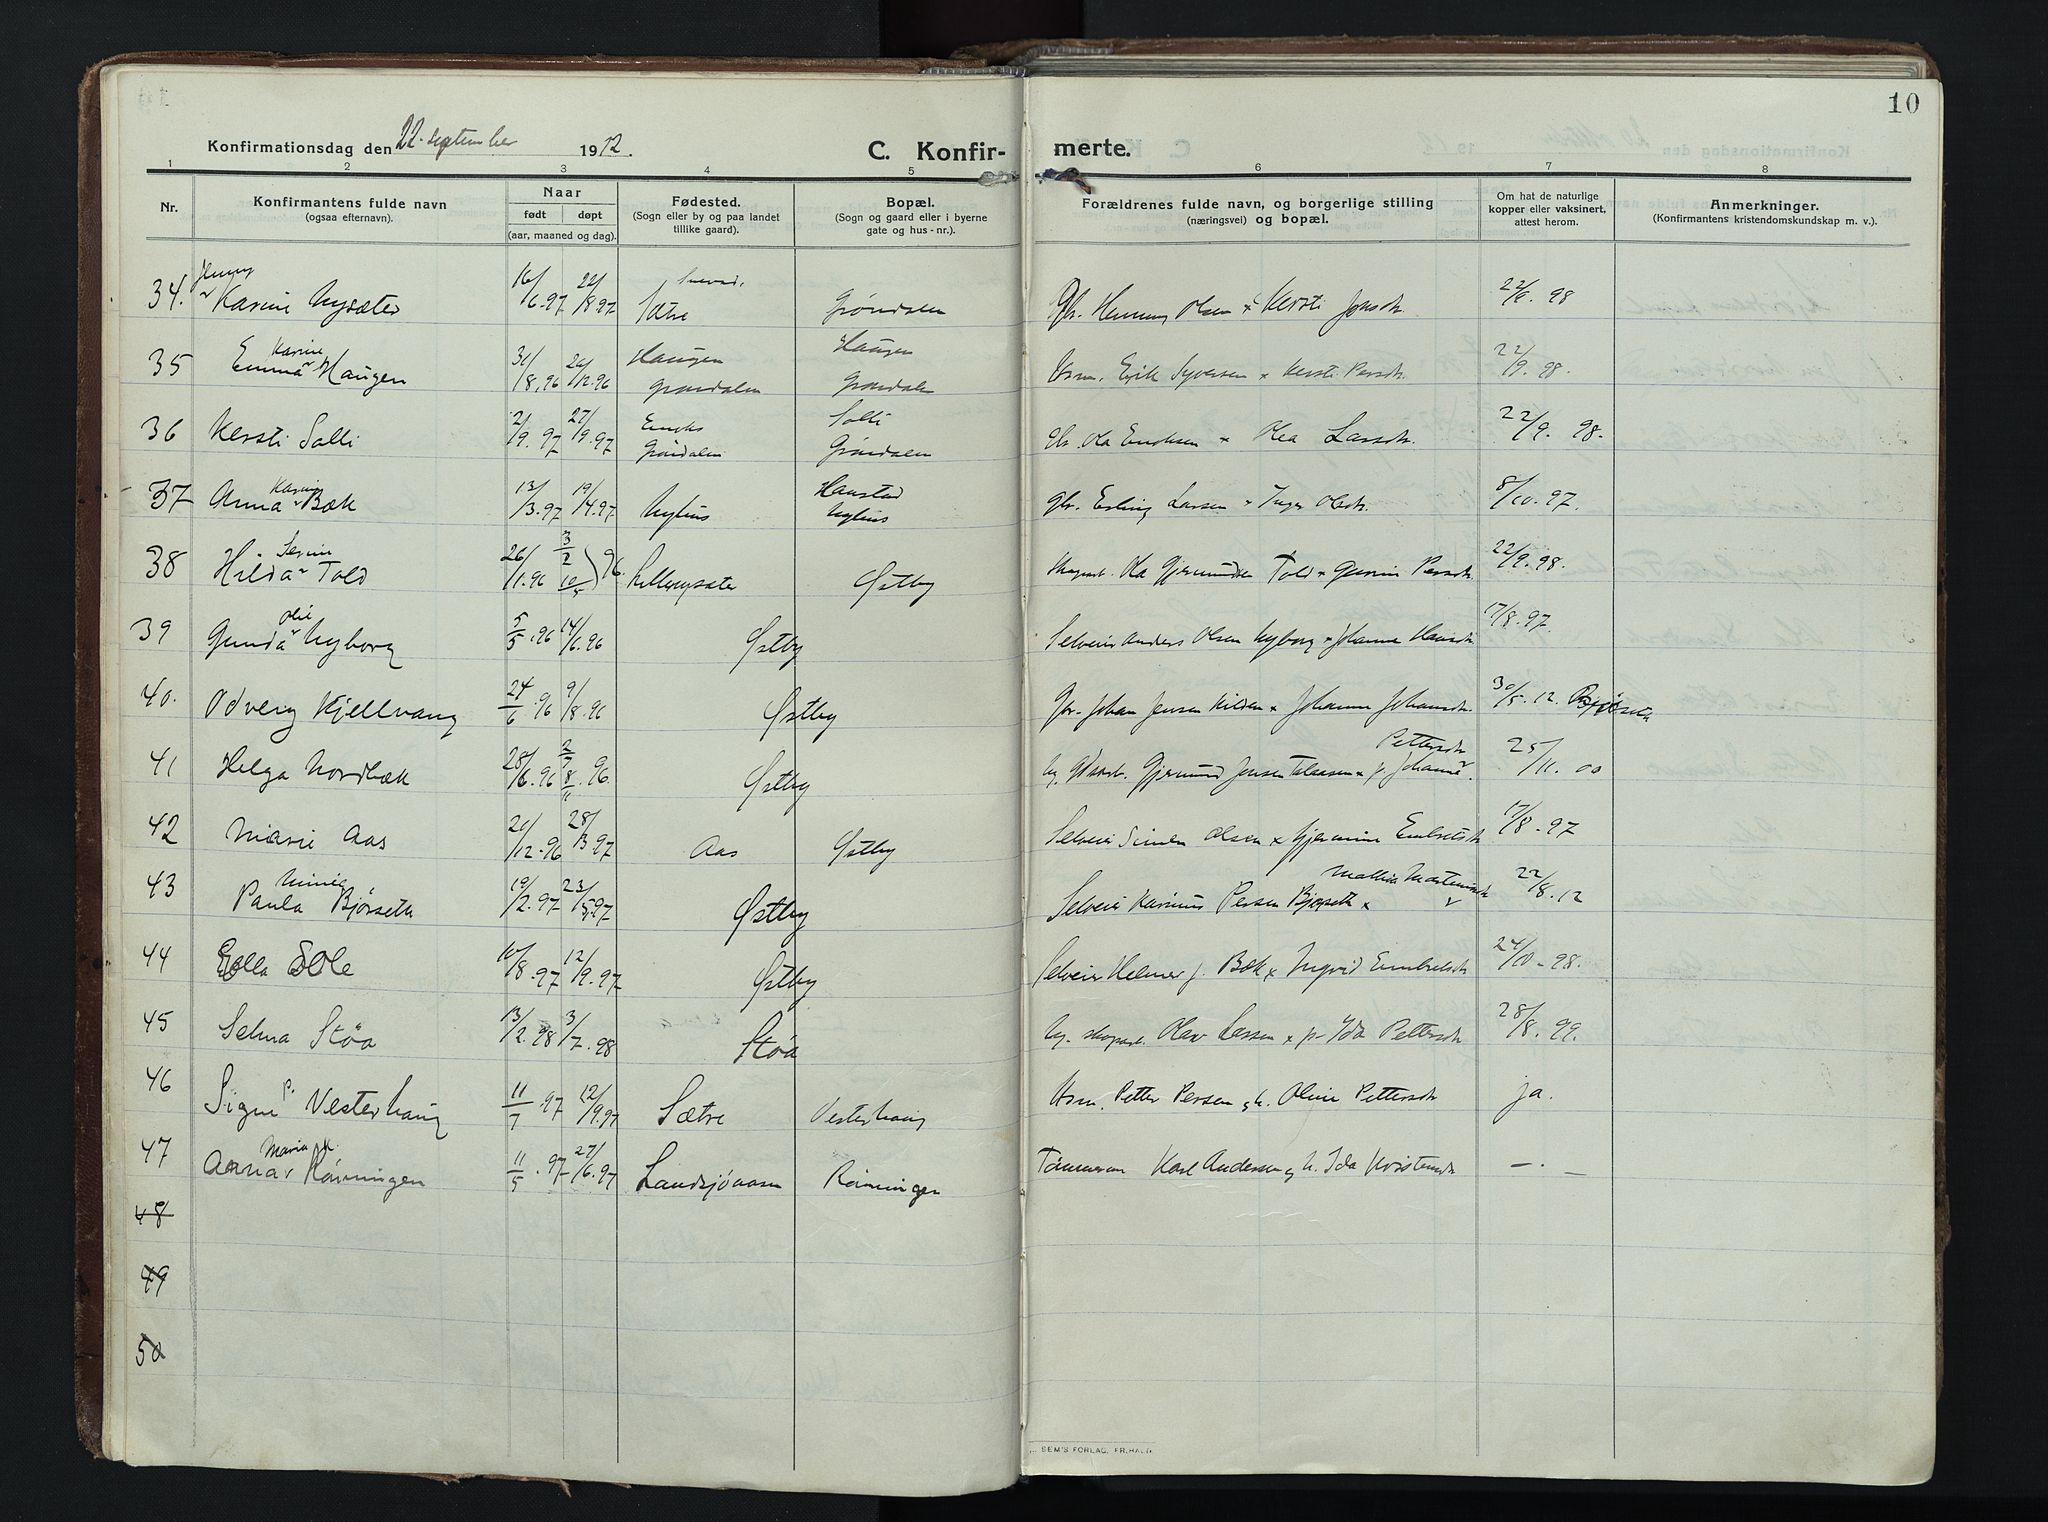 10
Konfirmationsdag den 22. september 1912.
C. Konfir- merte.
1 2 3 4 5 6 7 8
Nr.
Konfirmantens fulde navn
(ogsaa efternavn).
Naar
født døpt
(aar, maaned og dag).
Fødested.
(Sogn eller by og paa landet
tillike gaard).
Bopæl.
(Sogn og gaard eller i byerne
gate og hus-nr.).
Forældrenes fulde navn, og borgerlige stilling
(næringsvei) og bopæl.
Om hat de naturlige
kopper eller vaksinert,
attest herom.
Anmerkninger.
(Konfirmantens kristendomskundskap m. v.).
Jenny
34. Karine Nysæter 16/6.97 22/8.97 Sætre Grøndalen Gbr. Henning Olsen x Kersti Jonsdr. 98
Karine
35 Emma Haugen 31/8.96 26/12.96 Haugen Grøndalen Haugen Grøndalen Erik Syversen x Kersti Persdr. 22/9.98.
36 Kersti Solli 2/9.97 27/9.97 Grøndalen Solli Grøndalen Gbr. Ola Eriksen x Olea Larsdr. 22/9.98.
Karine
37 Anna Bæk 13/3.97 19/4.97 Nyhus Haustad Nyhus Gbr. Erling Larsen x Inger Olsdr. 8/10.97.
Serine
38 Hilda Told 26/1.96 3/2 10/5 96. Østby Ola Gjermundsen Told x Gunine Persdr. 22/9.98.
Olie
39 Gunda Nyborg 5/5.96 14/6.96 Østby Selveier Anders Olsen Nyborg x Johanne Hansdr. 17/8.97.
40. Odveig Kjellvang 24/6.96 9/8.96 Østby Gbr. Johan Jensen Kilden x Johanne Johansdr. 30/5.12. Bjørseth
41 Helga Nordbæk 28/6.96 2/8 96. Østby Gjermund Jensen x p. Johanne Pettersdr. 25/11.00
42 Marie Aas 20/12.96 28/3.97 Aas Østby Selveier Simen Olsen x Gjermine Embretsdr. 17/8.97
Minie
43 Paula Bjørseth 19/2.97 23/5.97 Østby Selveier Karinus Persen Bjørseth x Mathea Mortensdr. 22/8.12
44 Ella Ole 10/8.97 12/9.97 Østby Selveier Helmer J. Bæk x Ingrid Embretsdr. 24/10.98.
45 Selma Støa 13/2.98 3/7.98 Støa Olav Larsen x p. Ida Pettersdr. 28/8.99.
46 Signe P. Vesterhaug 11/7.97 12/9.97 Sætre Vesterhaug Hsm. Petter Persen og h. Oline Pettersdr. ja.
Maria K.
47 Anna Rønningen 11/5.97 27/6.97 Landsjøaasen Rønningen Tømmerm. Karl Andersen og h. Ida Kristensdr. —.—
48
49
50
SEM'S FORLAG, FR.HALD